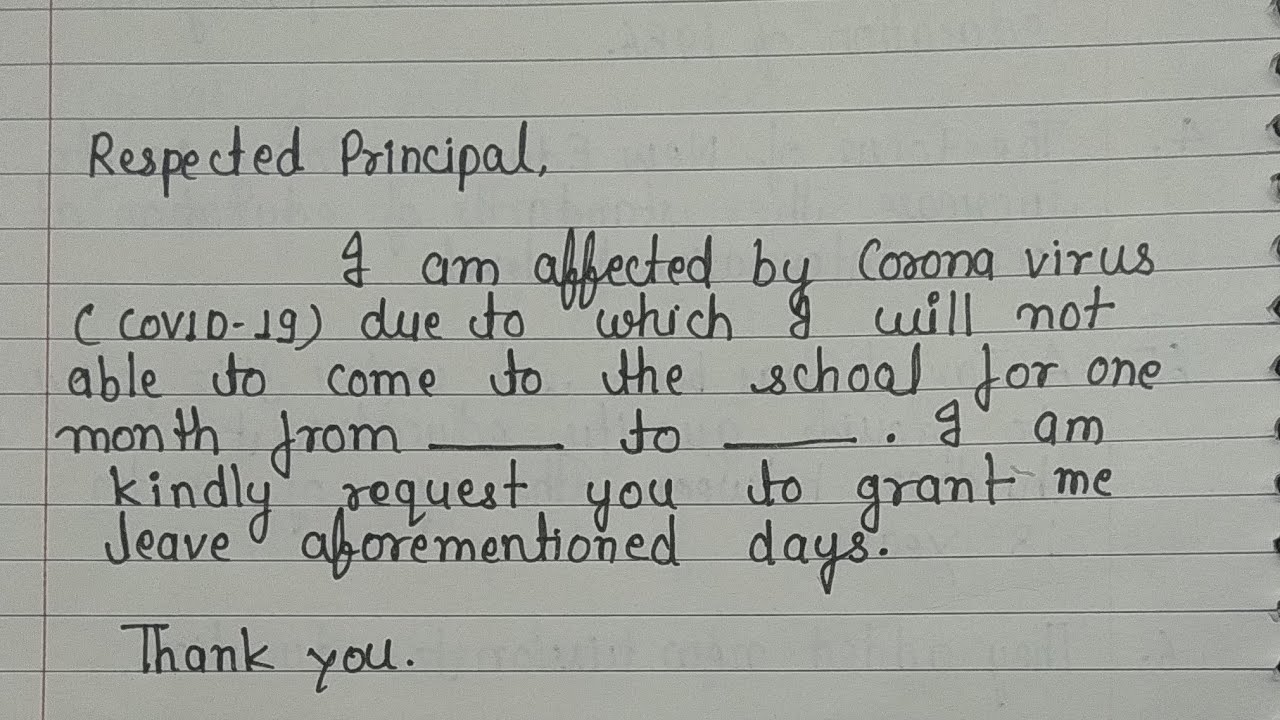 Respected Principal,
I am affected by Corona virus
(COVID-19) due to which I will not
able to come to the school for one
month from ____ to ____. I am
kindly request you to grant me
leave aforementioned days.
Thank you.